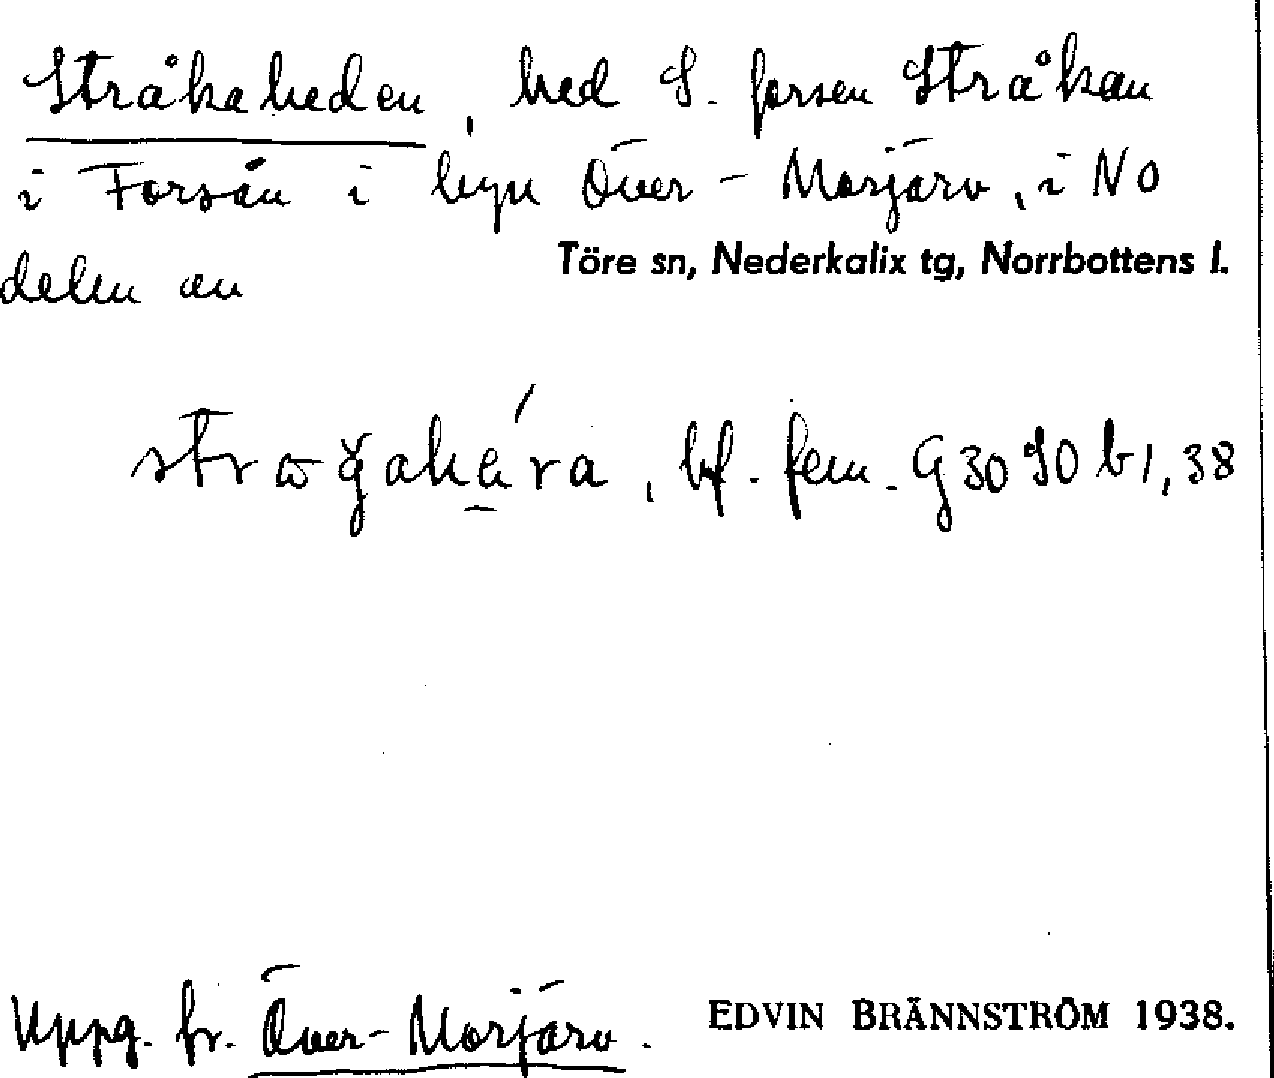 Stråkaheden, hed S. forsen Stråkan
i Forsån i byn Över-Morjärv, i NO
delen av
Töre sn, Nederkalix tg, Norrbottens l.
bf. fem. G 30 SO b 1, 38
Uppg. fr. Över-Morjärv.
EDVIN BRÄNNSTRÖM 1938.